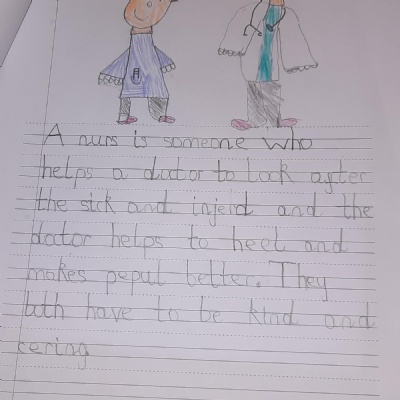 A nurs is someone who
helps a doctor to look after
the sick and injerd and the
doctor helps to heel and
makes pepul better. They
both have to be kind and
cering